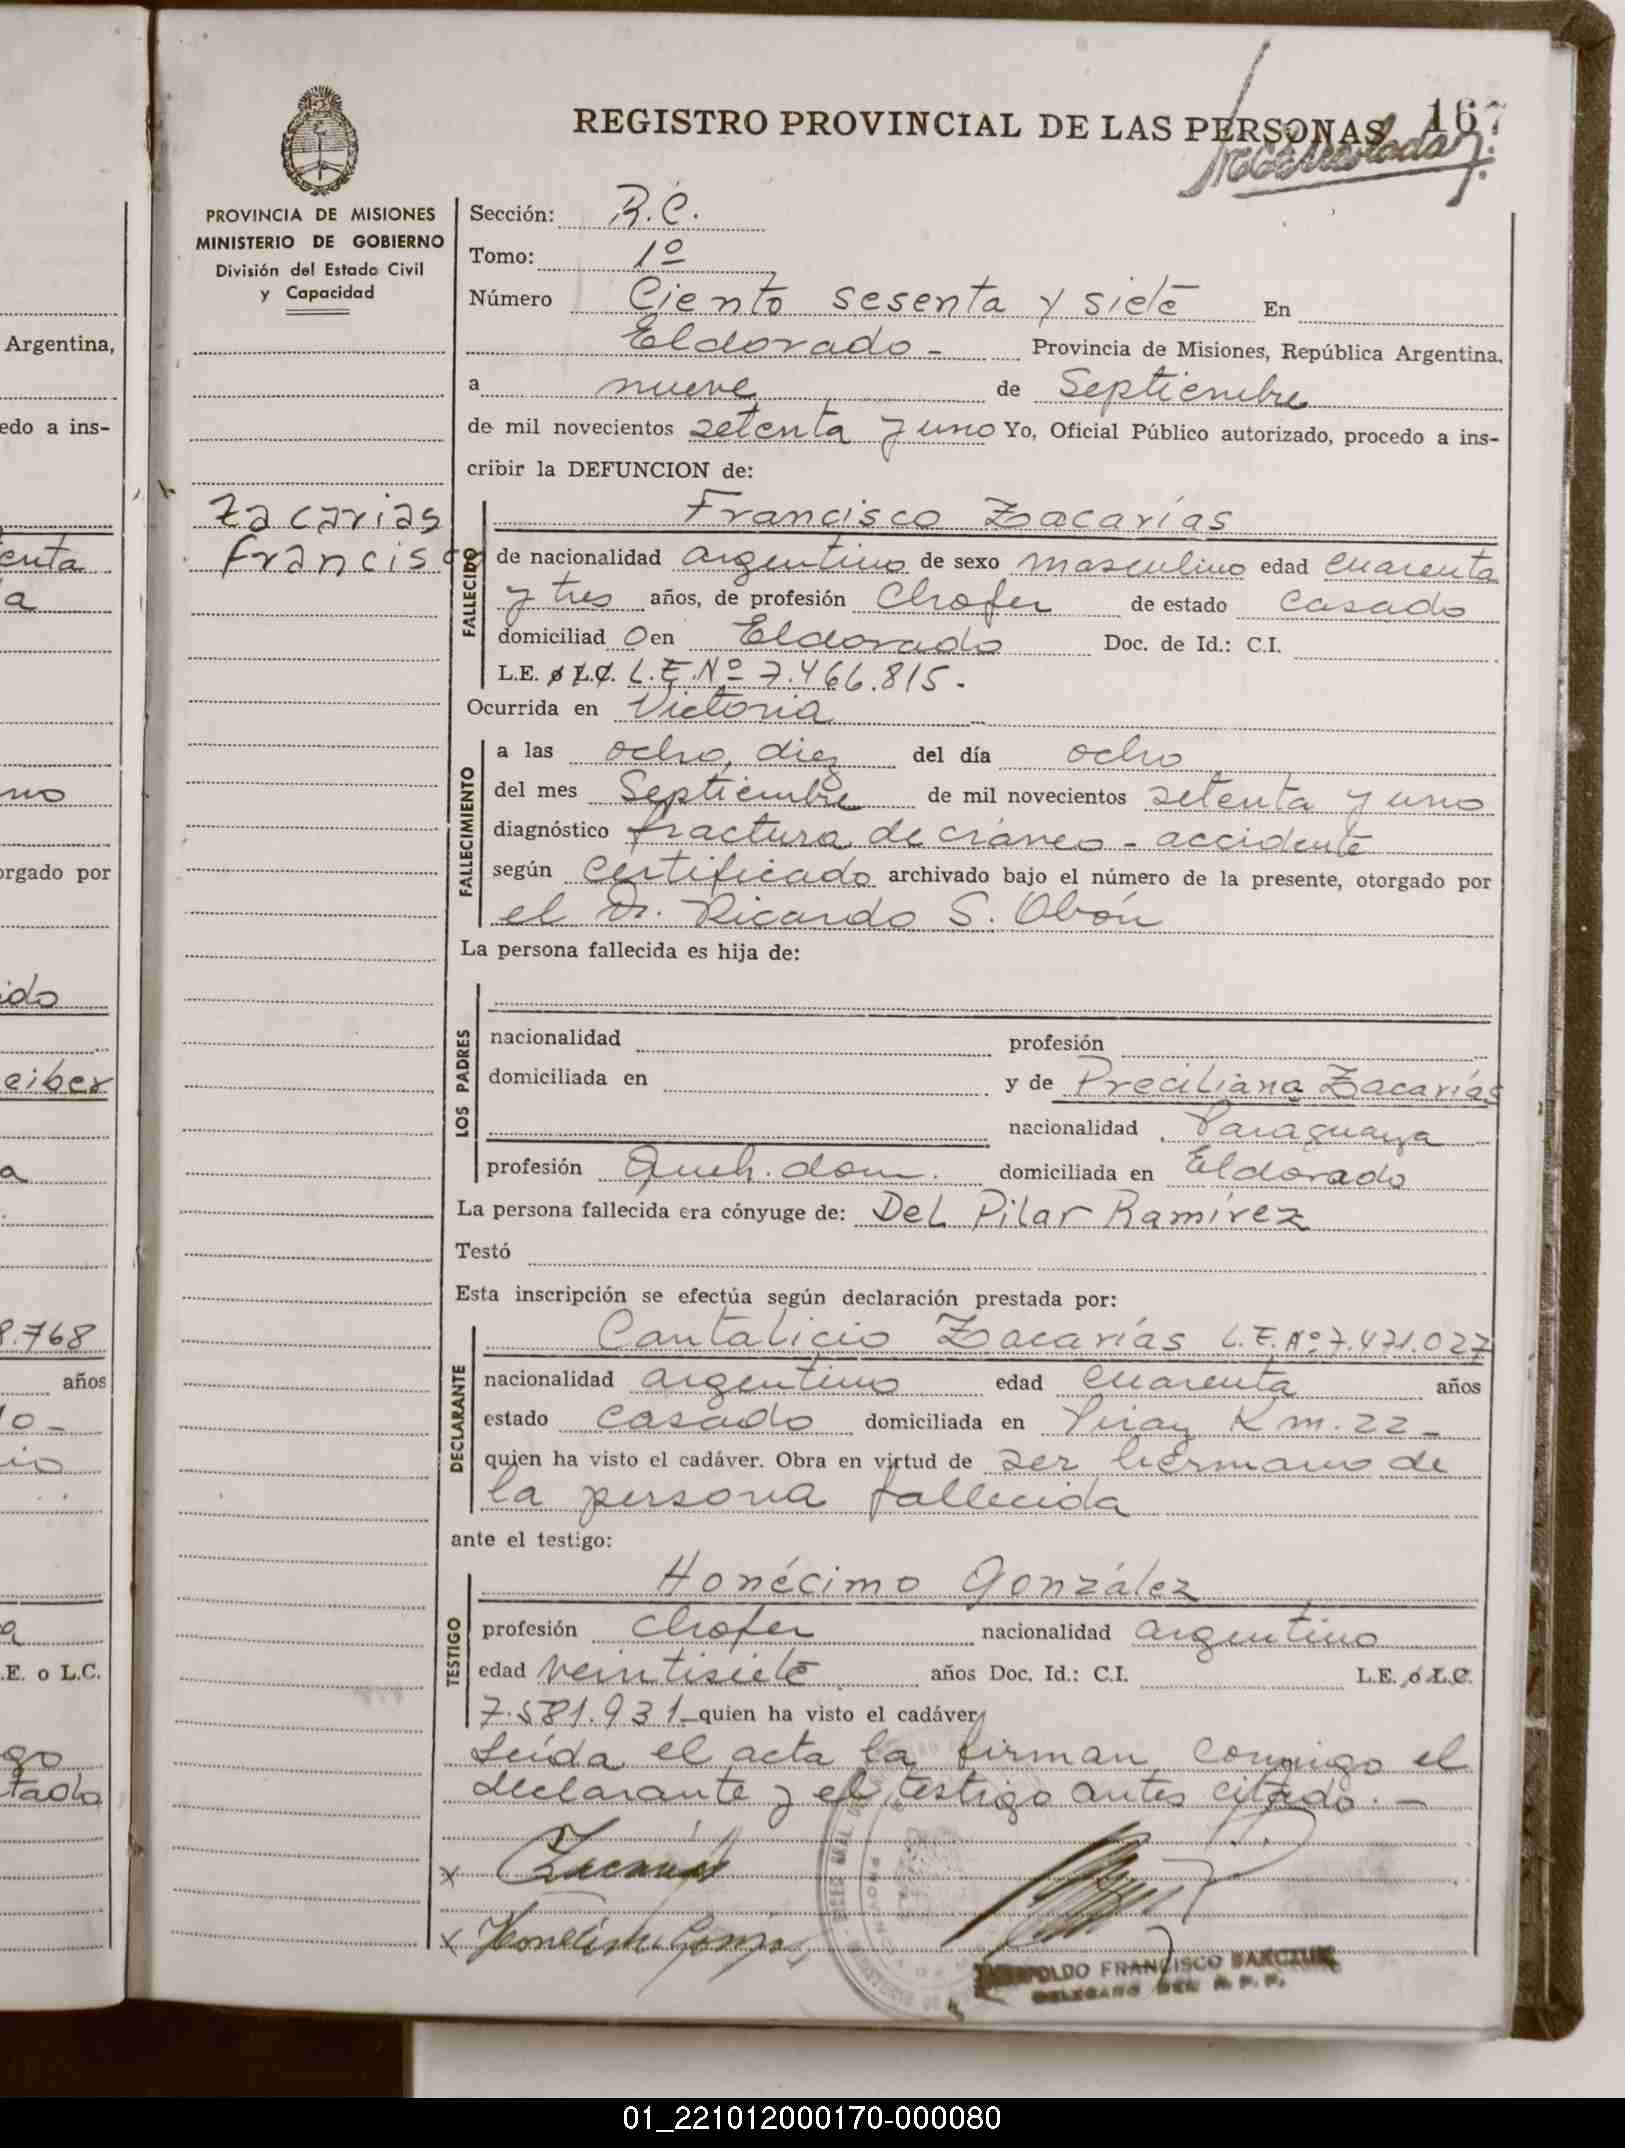 REGISTRO PROVINCIAL DE LAS PERSONAS 167
PROVINCIA DE MISIONES
MINISTERIO DE GOBIERNO
División del Estado Civil
y Capacidad
Zacarias
Francisco
Sección: R.C.
Tomo: 1º
Número Ciento sesenta y siete En
Eldorado - Provincia de Misiones, República Argentina,
a nueve de Septiembre
de mil novecientos setenta y uno Yo, Oficial Público autorizado, procedo a ins-
cribir la DEFUNCION de:
FALLECIDO
Francisco Zacarías
de nacionalidad argentino de sexo masculino edad cuarenta
y tres años, de profesión Chofer de estado casado
domiciliad o en Eldorado Doc. de Id.: C.I.
L.E. o L.C. L.E.Nº 7.466.815.
Ocurrida en Victoria
FALLECIMIENTO
a las ocho, diez del día ocho
del mes Septiembre de mil novecientos setenta y uno
diagnóstico fractura de cráneo - accidente
según certificado archivado bajo el número de la presente, otorgado por
el Dr. Ricardo S. Obón
La persona fallecida es hija de:
LOS PADRES
nacionalidad profesión
domiciliada en y de Preciliana Zacarías
nacionalidad Paraguaya
profesión Queh. dom. domiciliada en Eldorado
La persona fallecida era cónyuge de: Del Pilar Ramírez
Testó
Esta inscripción se efectúa según declaración prestada por:
DECLARANTE
Cantalicio Zacarías L.E.Nº 7.471.027
nacionalidad argentino edad cuarenta años
estado casado domiciliada en Piray Km. 22 -
quien ha visto el cadáver. Obra en virtud de ser hermano de
la persona fallecida
ante el testigo:
TESTIGO
Honécimo González
profesión chofer nacionalidad argentino
edad veintisiete años Doc. Id.: C.I. L.E. o L.C.
7.581.931 - quien ha visto el cadáver
Leída el acta la firman conmigo el
declarante y el testigo antes citado. -
x Zacarías
x
FRANCISCO
DELEGADO DEL R.P.P.
Argentina,
edo a ins-
enta
a
rgado por
ido
eiber
a
8.768
años
10-
io
a
.E. o L.C.
go
tado
01_221012000170-000080